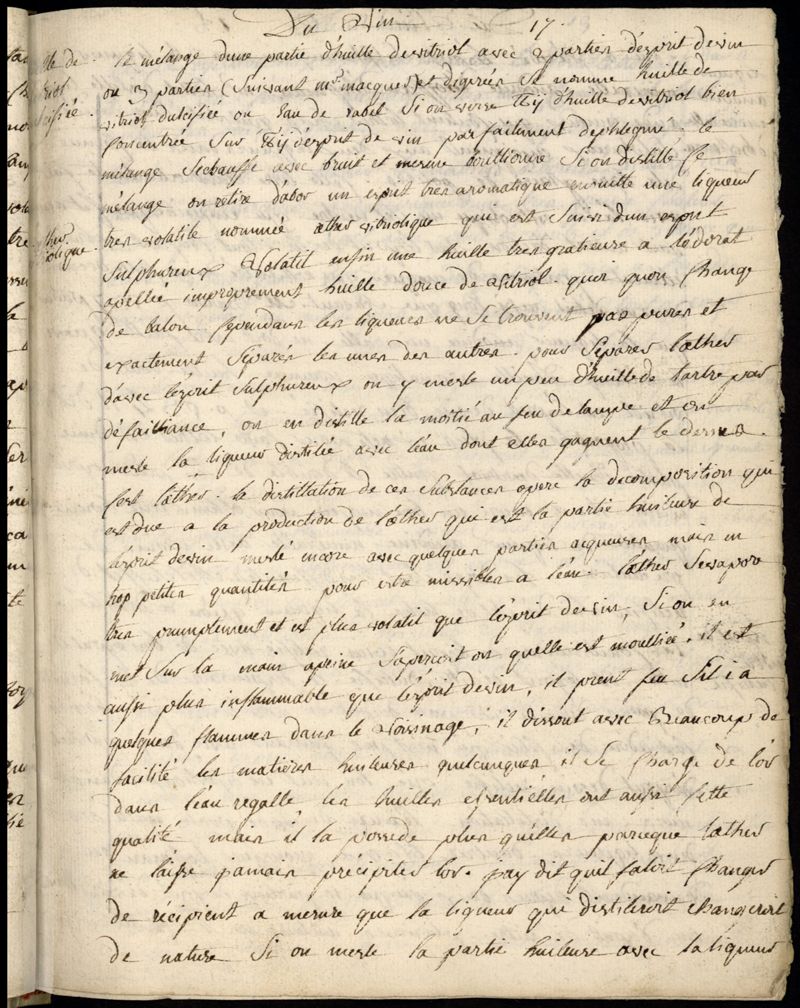 Du Vin 17.
le mélange dune partie d'huille de vitriol avec 2 parties d'ésprit de vin
ou 3 parties (suivant mr. macquer) et digerées se nomme huille de
vitriol dulcifiée ou Eau de rabel Si on verse ij d'huille de vitriol bien
Concentrée Sur ij d'ésprit de vin parfaitement dephlegmé, le
mélange S'echauffe avec bruit et mesme ébullitione Si on distille Ce
mélange on retire d'abor un esprit tres aromatique ensuitte une liqueur
tres volatile nommée æther vitriolique qui est Suivi d'un esprit
Sulphureux Volatil enfin une huille tres gratieuse a lódorat
apellée improprement huille douce de vitriol. quoi quon Change
de balon Cependans les liqueurs ne Se trouvent pas pures et
exactement Séparés les unes des autres. pour Séparer læther
d'avec lésprit Sulphureux on y mesle un peu d'huille de tartre par
défailliance, on en distille la moitié au feu de lampe et on
mesle la liqueur distilée avec léau dont elles gagnent le dessus.
C'est l'æther. la distillation de ces Substances opere la decomposition qui
est due a la production de l'æther qui est la partie huileuse de
lésprit de vin meslé encore avec quelques parties acqueuses mais en
trop petites quantités pour estre missibles a léau. læther S'evapore
tres promptement et est plus volatil que lésprit de vin, Si on en
met Sur la main a peine S'aperçoit on quelle est mouillié. il est
aussi plus inflammable que lésprit de vin, il prent feu Sil i a
quelques flammes dans le Voisinage, il dissout avec Beaucoup de
facilité les matières huileuses quelcunques il Se Charge de lór
dans léau regalle les huilles essentiélles ont aussi Cette
qualité mais il la possede plus quélles parceque læther
ne laisse jamais précipiter lor. jay dit quil faloit Changer
de récipient a mesure que la liqueur qui distileroit changeroit
de nature Si on mesle la partie huileuse avec la liqueur